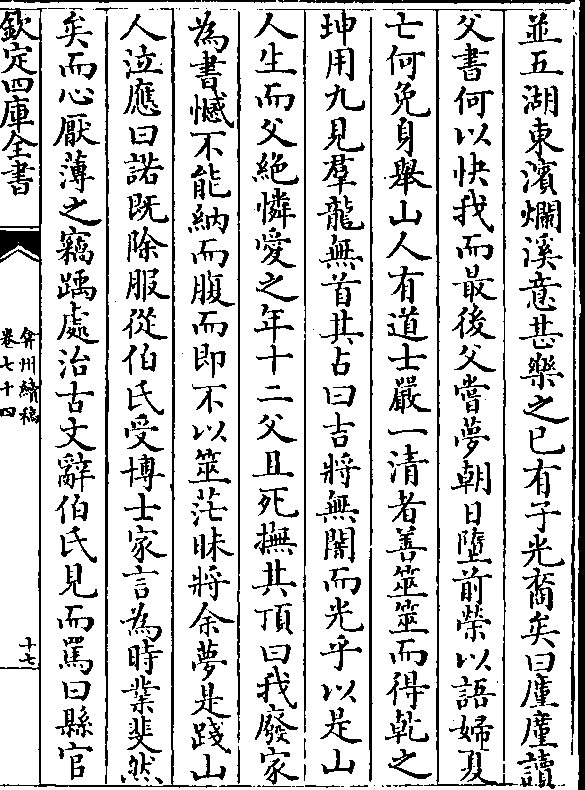 並五湖東濱爛溪意甚樂之已有子光裔矣曰廑廑讀
父書何以快我而最後父嘗夢朝日墮前榮以語婦夏
亡何免身舉山人有道士嚴一清者善筮筮而得乾之
坤用九見羣龍無首其占曰吉將無闇而光乎以是山
人生而父絶憐愛之年十二父且死撫其頂曰我廢家
為書憾不能納而腹而即不以筮茫昧將余夢是踐山
人泣應曰諾既除服從伯氏受博士家言為時業斐然
矣而心厭薄之竊踽處治古文辭伯氏見而罵曰縣官
欽定四庫全書
弇州續稿
卷七十四
十七